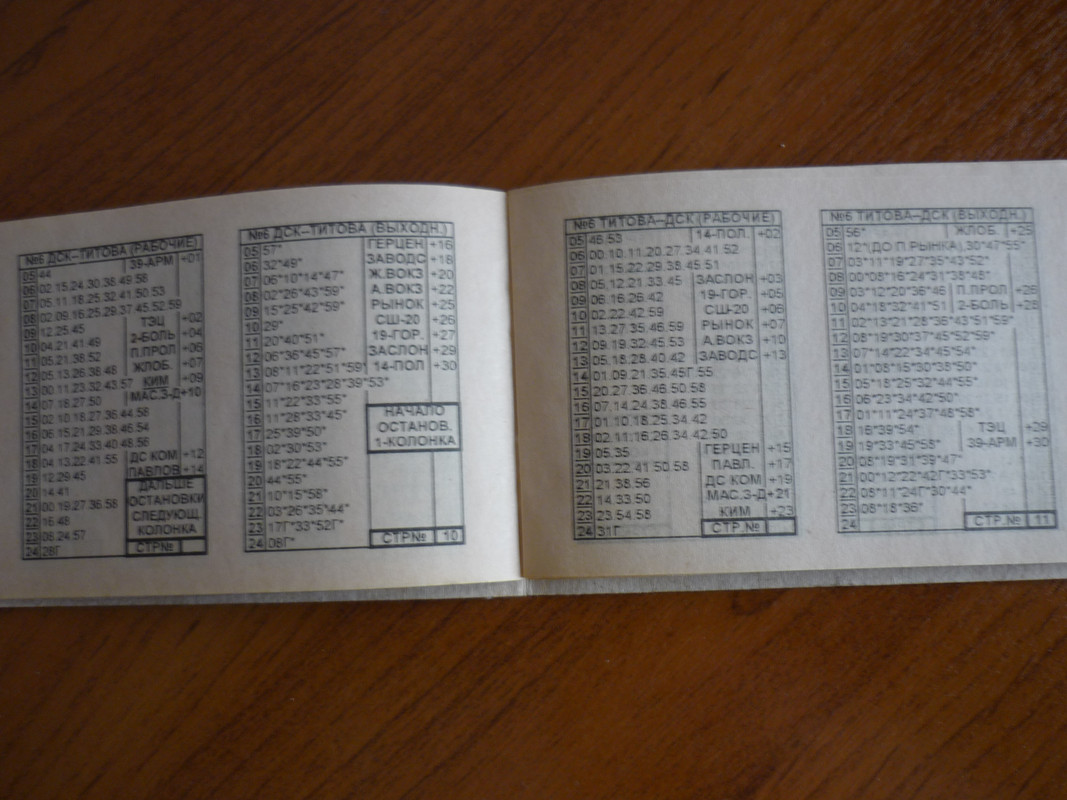 №6 ДСК–ТИТОВА (РАБОЧИЕ)
05 44 39-АРМ +01
06 02.15.24.30.38.49.58
07 05.11.18.25.32.41.50.53
08 02.09.16.25.29.37.45.52.59
09 12.25.45 ТЭЦ +02
10 04.21.41.49 2-БОЛЬ +04
11 05.21.38.52 П.ПРОЛ +06
12 05.13.26.38.48 ЖЛОБ. +07
13 00.11.23.32.43.57 КИМ +09
14 07.18.27.50 МАС.З-Д +10
15 02.10.18.27.36.44.58
16 06.15.21.29.38.46.54
17 04.17.24.33.40.48.56
18 04.13.22.41.55 ДС КОМ +12
19 12.29.45 ПАВЛОВ +14
20 14.41 ДАЛЬШЕ
21 00.19.27.36.58 ОСТАНОВКИ
22 16.48 СЛЕДУЮЩ.
23 08.24.57 КОЛОНКА
24 28Г СТР№
№6 ДСК–ТИТОВА (ВЫХОДН.)
05 57* ГЕРЦЕН +16
06 32*49* ЗАВОДС +18
07 06*10*14*47* Ж.ВОКЗ +20
08 02*26*43*59* А.ВОКЗ +22
09 15*25*42*59* РЫНОК +25
10 29* СШ-20 +26
11 20*40*51* 19-ГОР. +27
12 06*36*45*57* ЗАСЛОН +29
13 08*11*22*51*59* 14-ПОЛ +30
14 07*16*23*28*39*53*
15 11*22*33*55* НАЧАЛО
16 11*28*33*45* ОСТАНОВ.
17 25*39*50* 1-КОЛОНКА
18 02*30*53
19 18*22*44*55*
20 44*55*
21 10*15*58*
22 03*26*35*44*
23 17Г*33*52Г*
24 08Г* СТР№ 10
№6 ТИТОВА–ДСК (РАБОЧИЕ)
05 46.53 14-ПОЛ. +02
06 00.10.11.20.27.34.41.52
07 01.15.22.29.38.45.51
08 05.12.21.33.45 ЗАСЛОН +03
09 06.16.26.42 19-ГОР. +05
10 02.22.42.59 СШ-20 +06
11 13.27.35.46.59 РЫНОК +07
12 09.19.32.45.53 А.ВОКЗ +10
13 05.18.28.40.42 ЗАВОДС +13
14 01.09.21.35.45Г.55
15 20.27.36.46.50.58
16 07.14.24.38.46.55
17 01.10.18.25.34.42
18 02.11.16.26.34.42.50
19 05.35 ГЕРЦЕН +15
20 03.22.41.50.58 ПАВЛ. +17
21 21.38.56 ДС КОМ +19
22 14.33.50 МАС.З-Д +21
23 23.54.58 КИМ +23
24 31Г СТР.№
№6 ТИТОВА–ДСК (ВЫХОДН.)
05 56* ЖЛОБ. +25
06 12*(ДО П.РЫНКА).30*47*55*
07 03*11*19*27*35*43*52*
08 00*08*16*24*31*38*48*
09 03*12*20*36*46 П.ПРОЛ +26
10 04*18*32*41*51 2-БОЛЬ +28
11 02*13*21*28*36*43*51*59*
12 08*19*30*37*45*52*59*
13 07*14*22*34*45*54*
14 01*08*15*30*38*50*
15 05*18*25*32*44*55*
16 06*23*34*42*50*
17 01*11*24*37*48*58*
18 16*39*54* ТЭЦ +29
19 19*33*45*58* 39-АРМ +30
20 08*19*31*39*47*
21 00*12*22*42Г*33*53*
22 08*11*24Г*30*44*
23 08*18*36*
24 СТР.№ 11